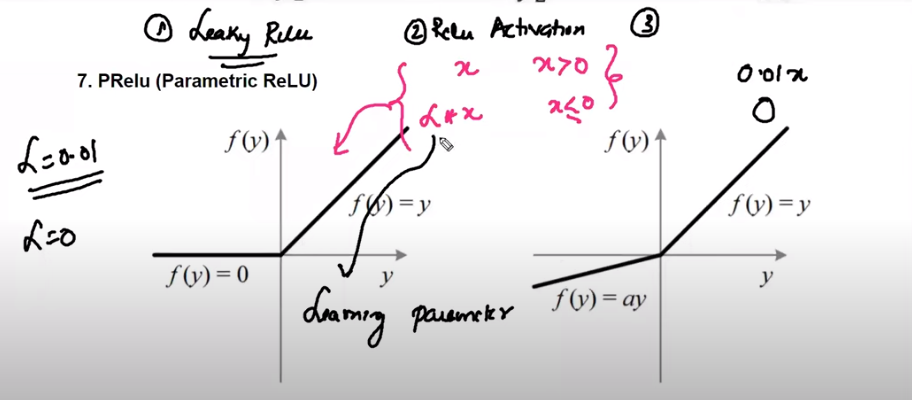 ① Leaky Relu ② Relu Activation ③
7. PRelu (Parametric ReLU)
x x>0
α*x x≤0
0.01x
0
α=0.01
α=0
f(y)
f(y) = y
f(y) = 0
y
Learning parameter
f(y)
f(y) = y
f(y) = ay
y